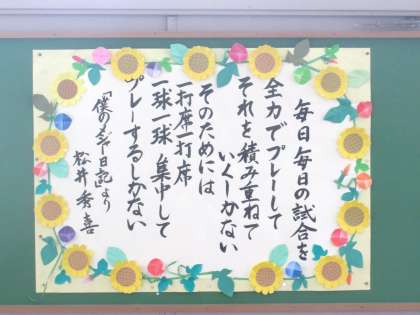 毎日毎日の試合を
全力でプレーして
それを積み重ねて
いくしかない
そのためには
一打席一打席
一球一球集中して
プレーするしかない
「僕のメジャー日記」より
松井秀喜